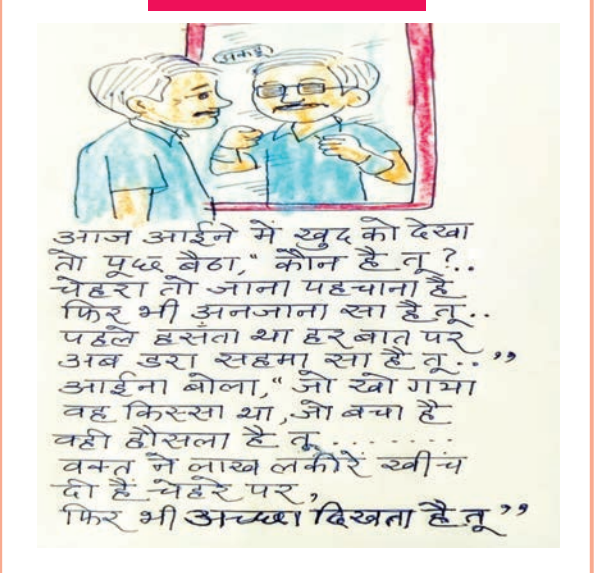 अकड़
आज आईने में खुद को देखा
तो पूछ बैठा," कौन है तू ?..
चेहरा तो जाना पहचाना है
फिर भी अनजाना सा है तू..
पहले हसंता था हर बात पर
अब डरा सहमा सा है तू.. "
आईना बोला," जो खो गया
वह किस्सा था, जो बचा है
वही हौसला है तू.........
वक्त ने लाख लकीरें खींच
दी हैं चेहरे पर,
फिर भी अच्छा दिखता है तू "